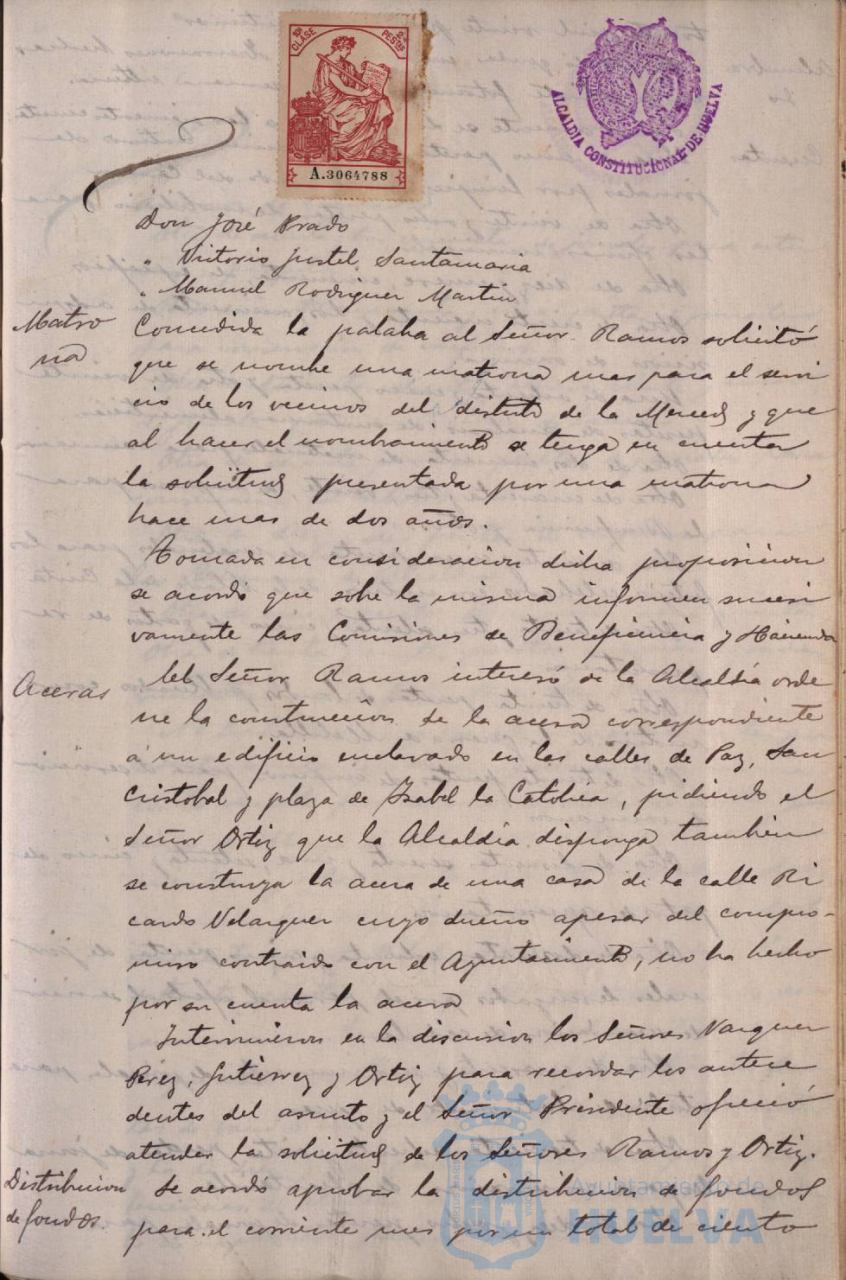 10ª CLASE 2 PESETAS
A.3064788
ALCALDIA CONSTITUCIONAL DE HUELVA
Don José Prado
" Vitorio Justel Santamaria
" Manuel Rodriguez Martin
Matro
na
Concedida la palabra al Señor Ramos solicitó
que se nombre una matrona mas para el servi
cio de los vecinos del distrito de la Merced y que
al hacer el nombramiento se tenga en cuenta
la solicitud presentada por una matrona
hace mas de dos años.
Tomada en consideracion dicha proposicion
se acordó que sobre la misma informen sucesi
vamente las Comisiones de Beneficencia y Hacienda
Aceras
El Señor Ramos interesó de la Alcaldía orde
ne la construccion de la acera correspondiente
á un edificio enclavado en las calles de Paz, San
Cristobal y plaza de Isabel la Catolica, pidiendo el
Señor Ortiz que la Alcaldia disponga tambien
se construya la acera de una casa de la calle Ri
cardo Velazquez cuyo dueño apesar del compro-
miso contraido con el Ayuntamiento, no ha hecho
por su cuenta la acera
Intervinieron en la discusion los Señores Vazquez
Perez, Gutierrez y Ortiz para recordar los antece
dentes del asunto y el Señor Presidente ofreció
atender la solicitud de los Señores Ramos y Ortiz.
Distribucion
de fondos.
Se acordó aprobar la distribucion de fondos
para el corriente mes por un total de ciento
Ayuntamiento de
HUELVA